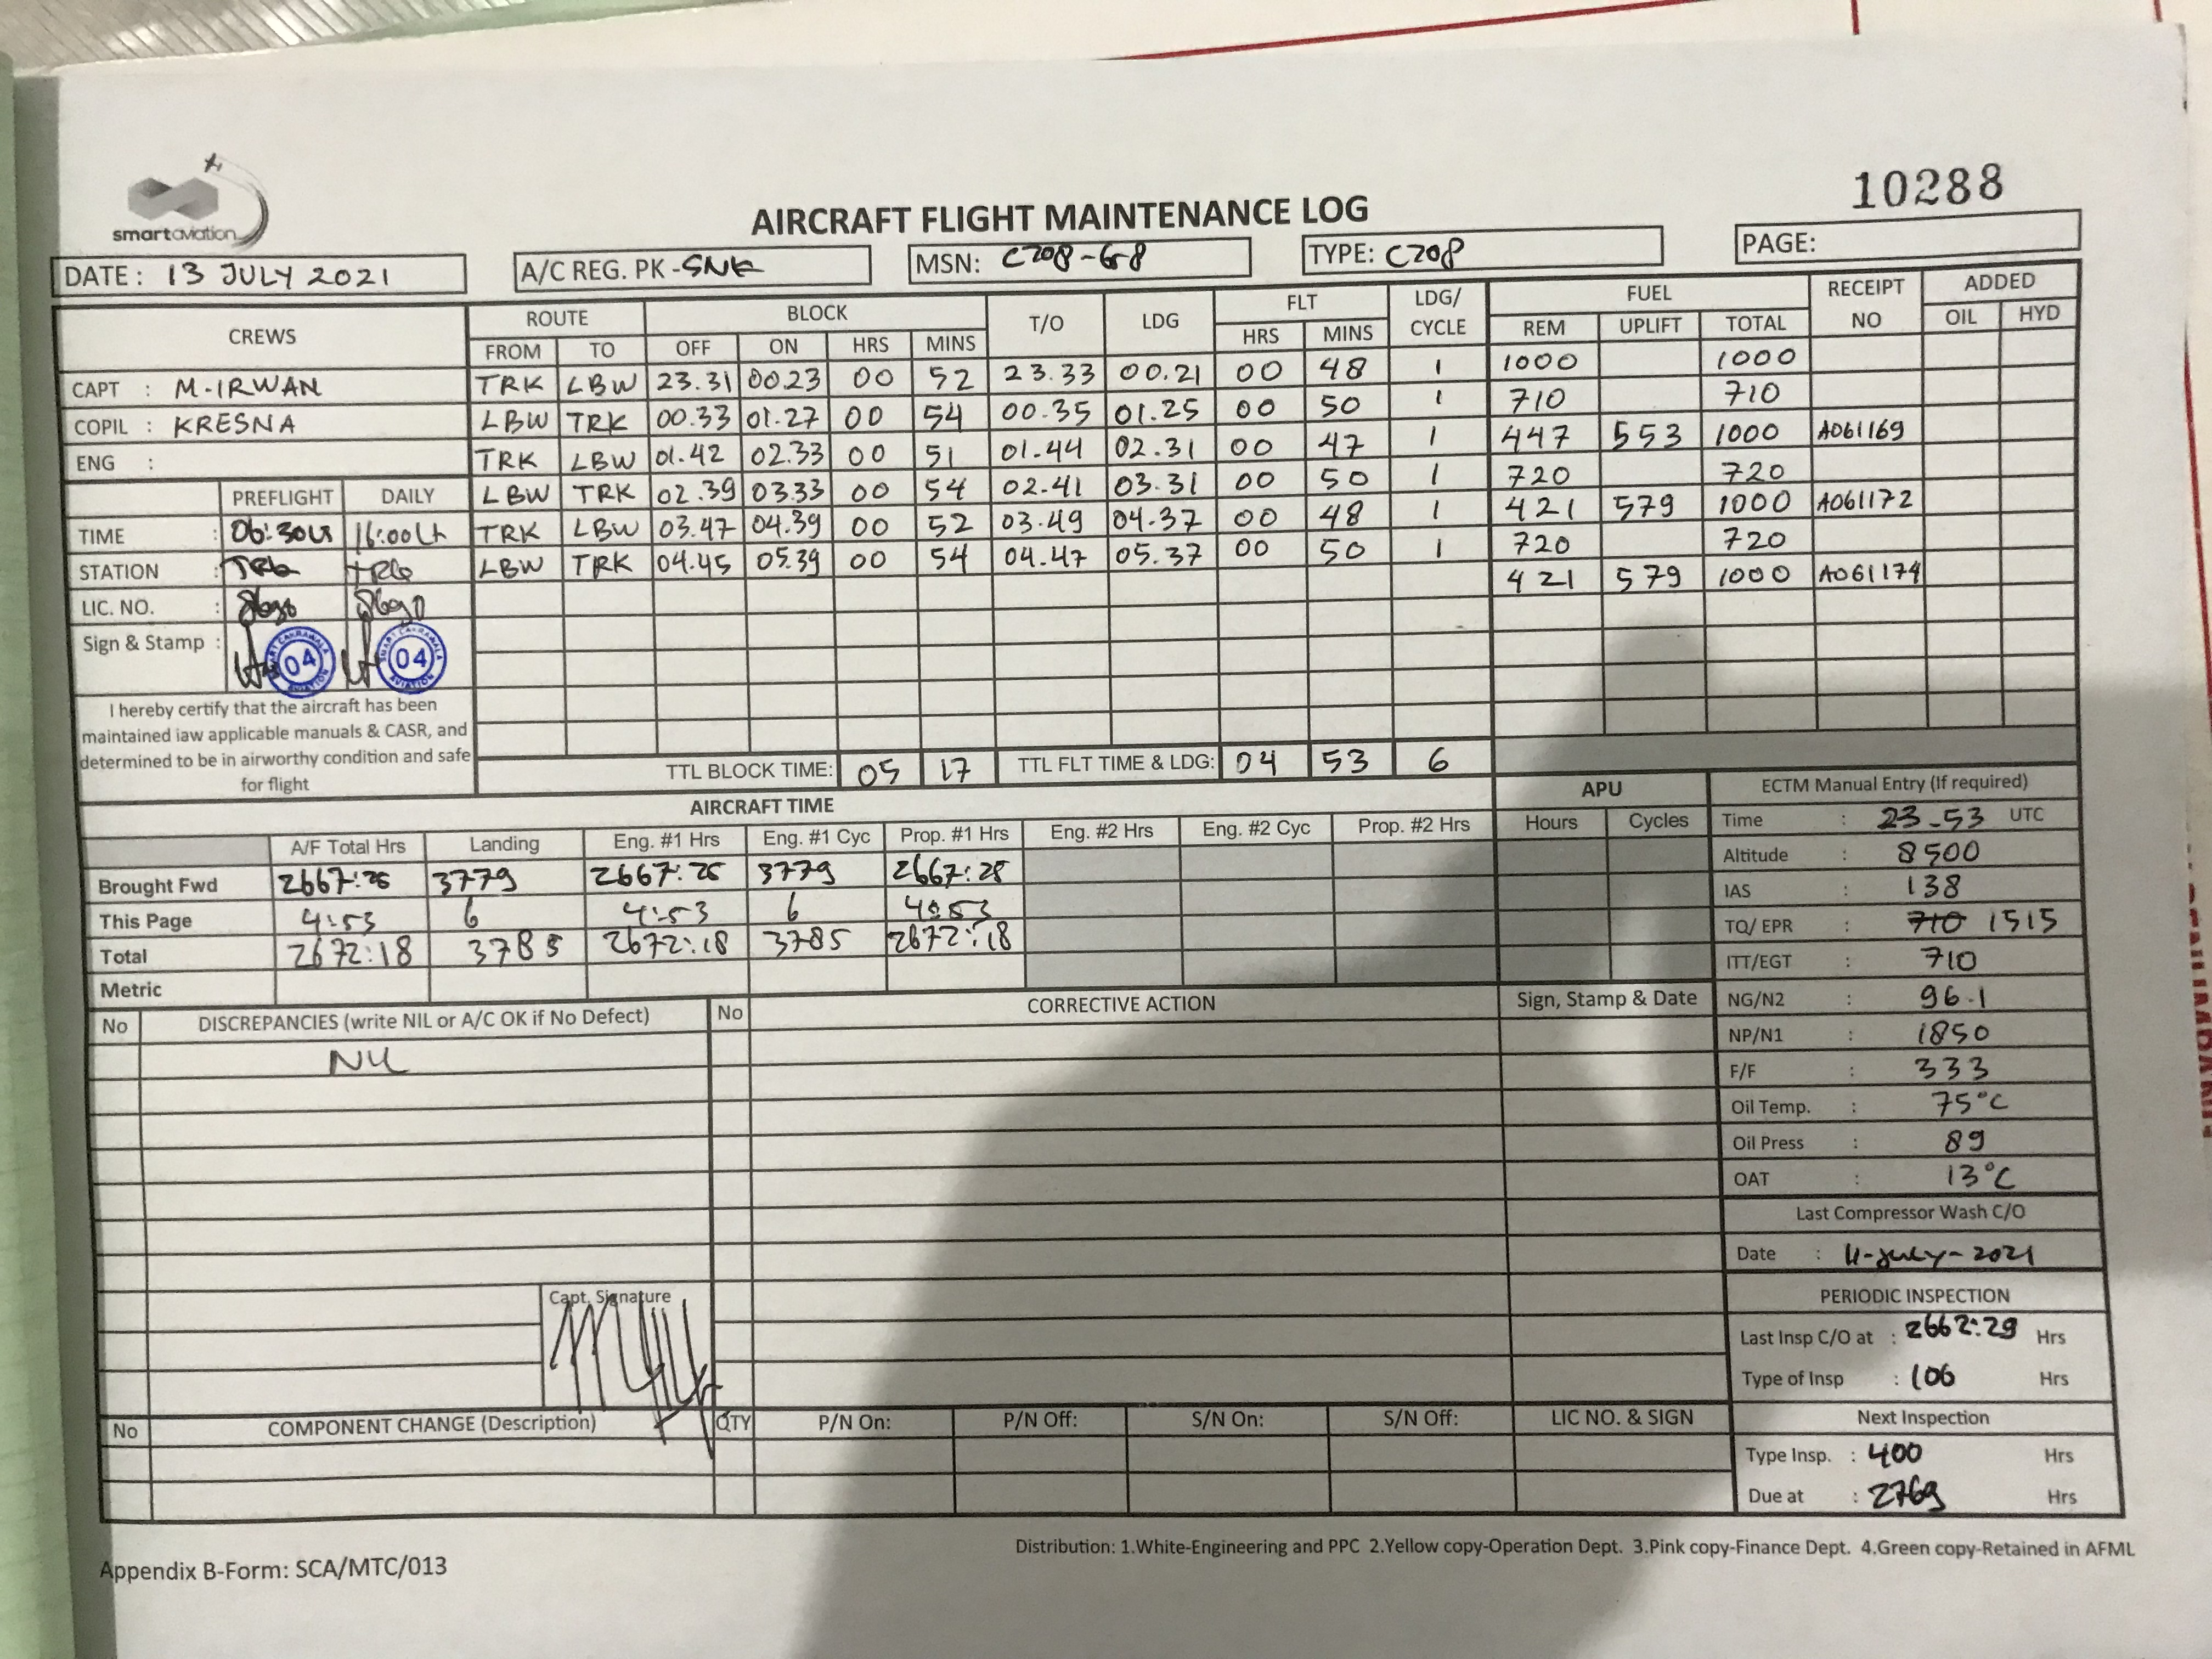 10288
smartaviation
AIRCRAFT FLIGHT MAINTENANCE LOG
DATE : 13 JULY 2021 A/C REG. PK - SNK MSN: C208-658 TYPE: C208 PAGE:
CREWS ROUTE BLOCK T/O LDG FLT LDG/ CYCLE FUEL RECEIPT NO ADDED
FROM TO OFF ON HRS MINS HRS MINS REM UPLIFT TOTAL OIL HYD
CAPT : M-IRWAN TRK LBW 23.31 00.23 00 52 23.33 00.21 00 48 1 1000 1000
COPIL : KRESNA LBW TRK 00.33 01.27 00 54 00.35 01.25 00 50 1 710 710
ENG : TRK LBW 01.42 02.33 00 51 01.44 02.31 00 47 1 447 553 1000 A061169
PREFLIGHT DAILY LBW TRK 02.39 03.33 00 54 02.41 03.31 00 50 1 720 720
TIME : 06:30 Lt 16:00 Lt TRK LBW 03.47 04.39 00 52 03.49 04.37 00 48 1 421 579 1000 A061172
STATION : TRK TRK LBW TRK 04.45 05.39 00 54 04.47 05.37 00 50 1 720 720
LIC. NO. : 421 579 1000 A061174
Sign & Stamp :
SMART CAKRAWALA AVIATION 04
SMART CAKRAWALA AVIATION 04
I hereby certify that the aircraft has been
maintained iaw applicable manuals & CASR, and
determined to be in airworthy condition and safe
for flight
TTL BLOCK TIME: 05 17 TTL FLT TIME & LDG: 04 53 6
AIRCRAFT TIME APU
A/F Total Hrs Landing Eng. #1 Hrs Eng. #1 Cyc Prop. #1 Hrs Eng. #2 Hrs Eng. #2 Cyc Prop. #2 Hrs Hours Cycles
Brought Fwd 2667:25 3779 2667:25 3779 2667:25
This Page 4:53 6 4:53 6 4:53
Total 2672:18 3785 2672:18 3785 2672:18
Metric
ECTM Manual Entry (If required)
Time : 23.53 UTC
Altitude : 8500
IAS : 138
TQ/ EPR : 710 1515
ITT/EGT : 710
NG/N2 : 96.1
NP/N1 : 1850
F/F : 333
Oil Temp. : 75°C
Oil Press : 89
OAT : 13°C
Last Compressor Wash C/O
Date : 11-July-2021
PERIODIC INSPECTION
Last Insp C/O at : 2662:29 Hrs
Type of Insp : 100 Hrs
Next Inspection
Type Insp. : 400 Hrs
Due at : 2769 Hrs
No DISCREPANCIES (write NIL or A/C OK if No Defect) No CORRECTIVE ACTION Sign, Stamp & Date
NIL
Capt. Signature
No COMPONENT CHANGE (Description) QTY P/N On: P/N Off: S/N On: S/N Off: LIC NO. & SIGN
Distribution: 1.White-Engineering and PPC 2.Yellow copy-Operation Dept. 3.Pink copy-Finance Dept. 4.Green copy-Retained in AFML
Appendix B-Form: SCA/MTC/013